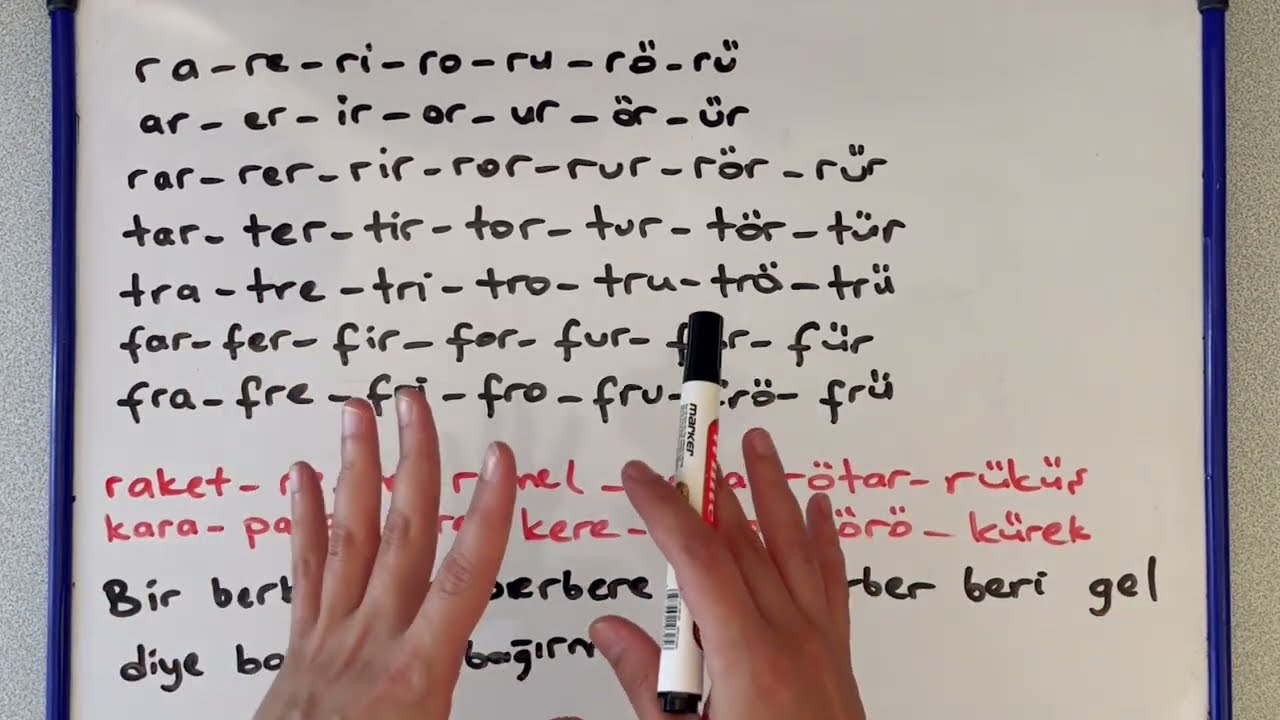 ra - re - ri - ro - ru - rö - rü
ar - er - ir - or - ur - ör - ür
rar - rer - rir - ror - rur - rör - rür
tar - ter - tir - tor - tur - tör - tür
tra - tre - tri - tro - tru - trö - trü
far - fer - fir - for - fur - für
fra - fre - fri - fro - fru - frö - frü
raket - - rötar - rüküş
kara - kere - - kürek
Bir berbere beri gel
diye
marker